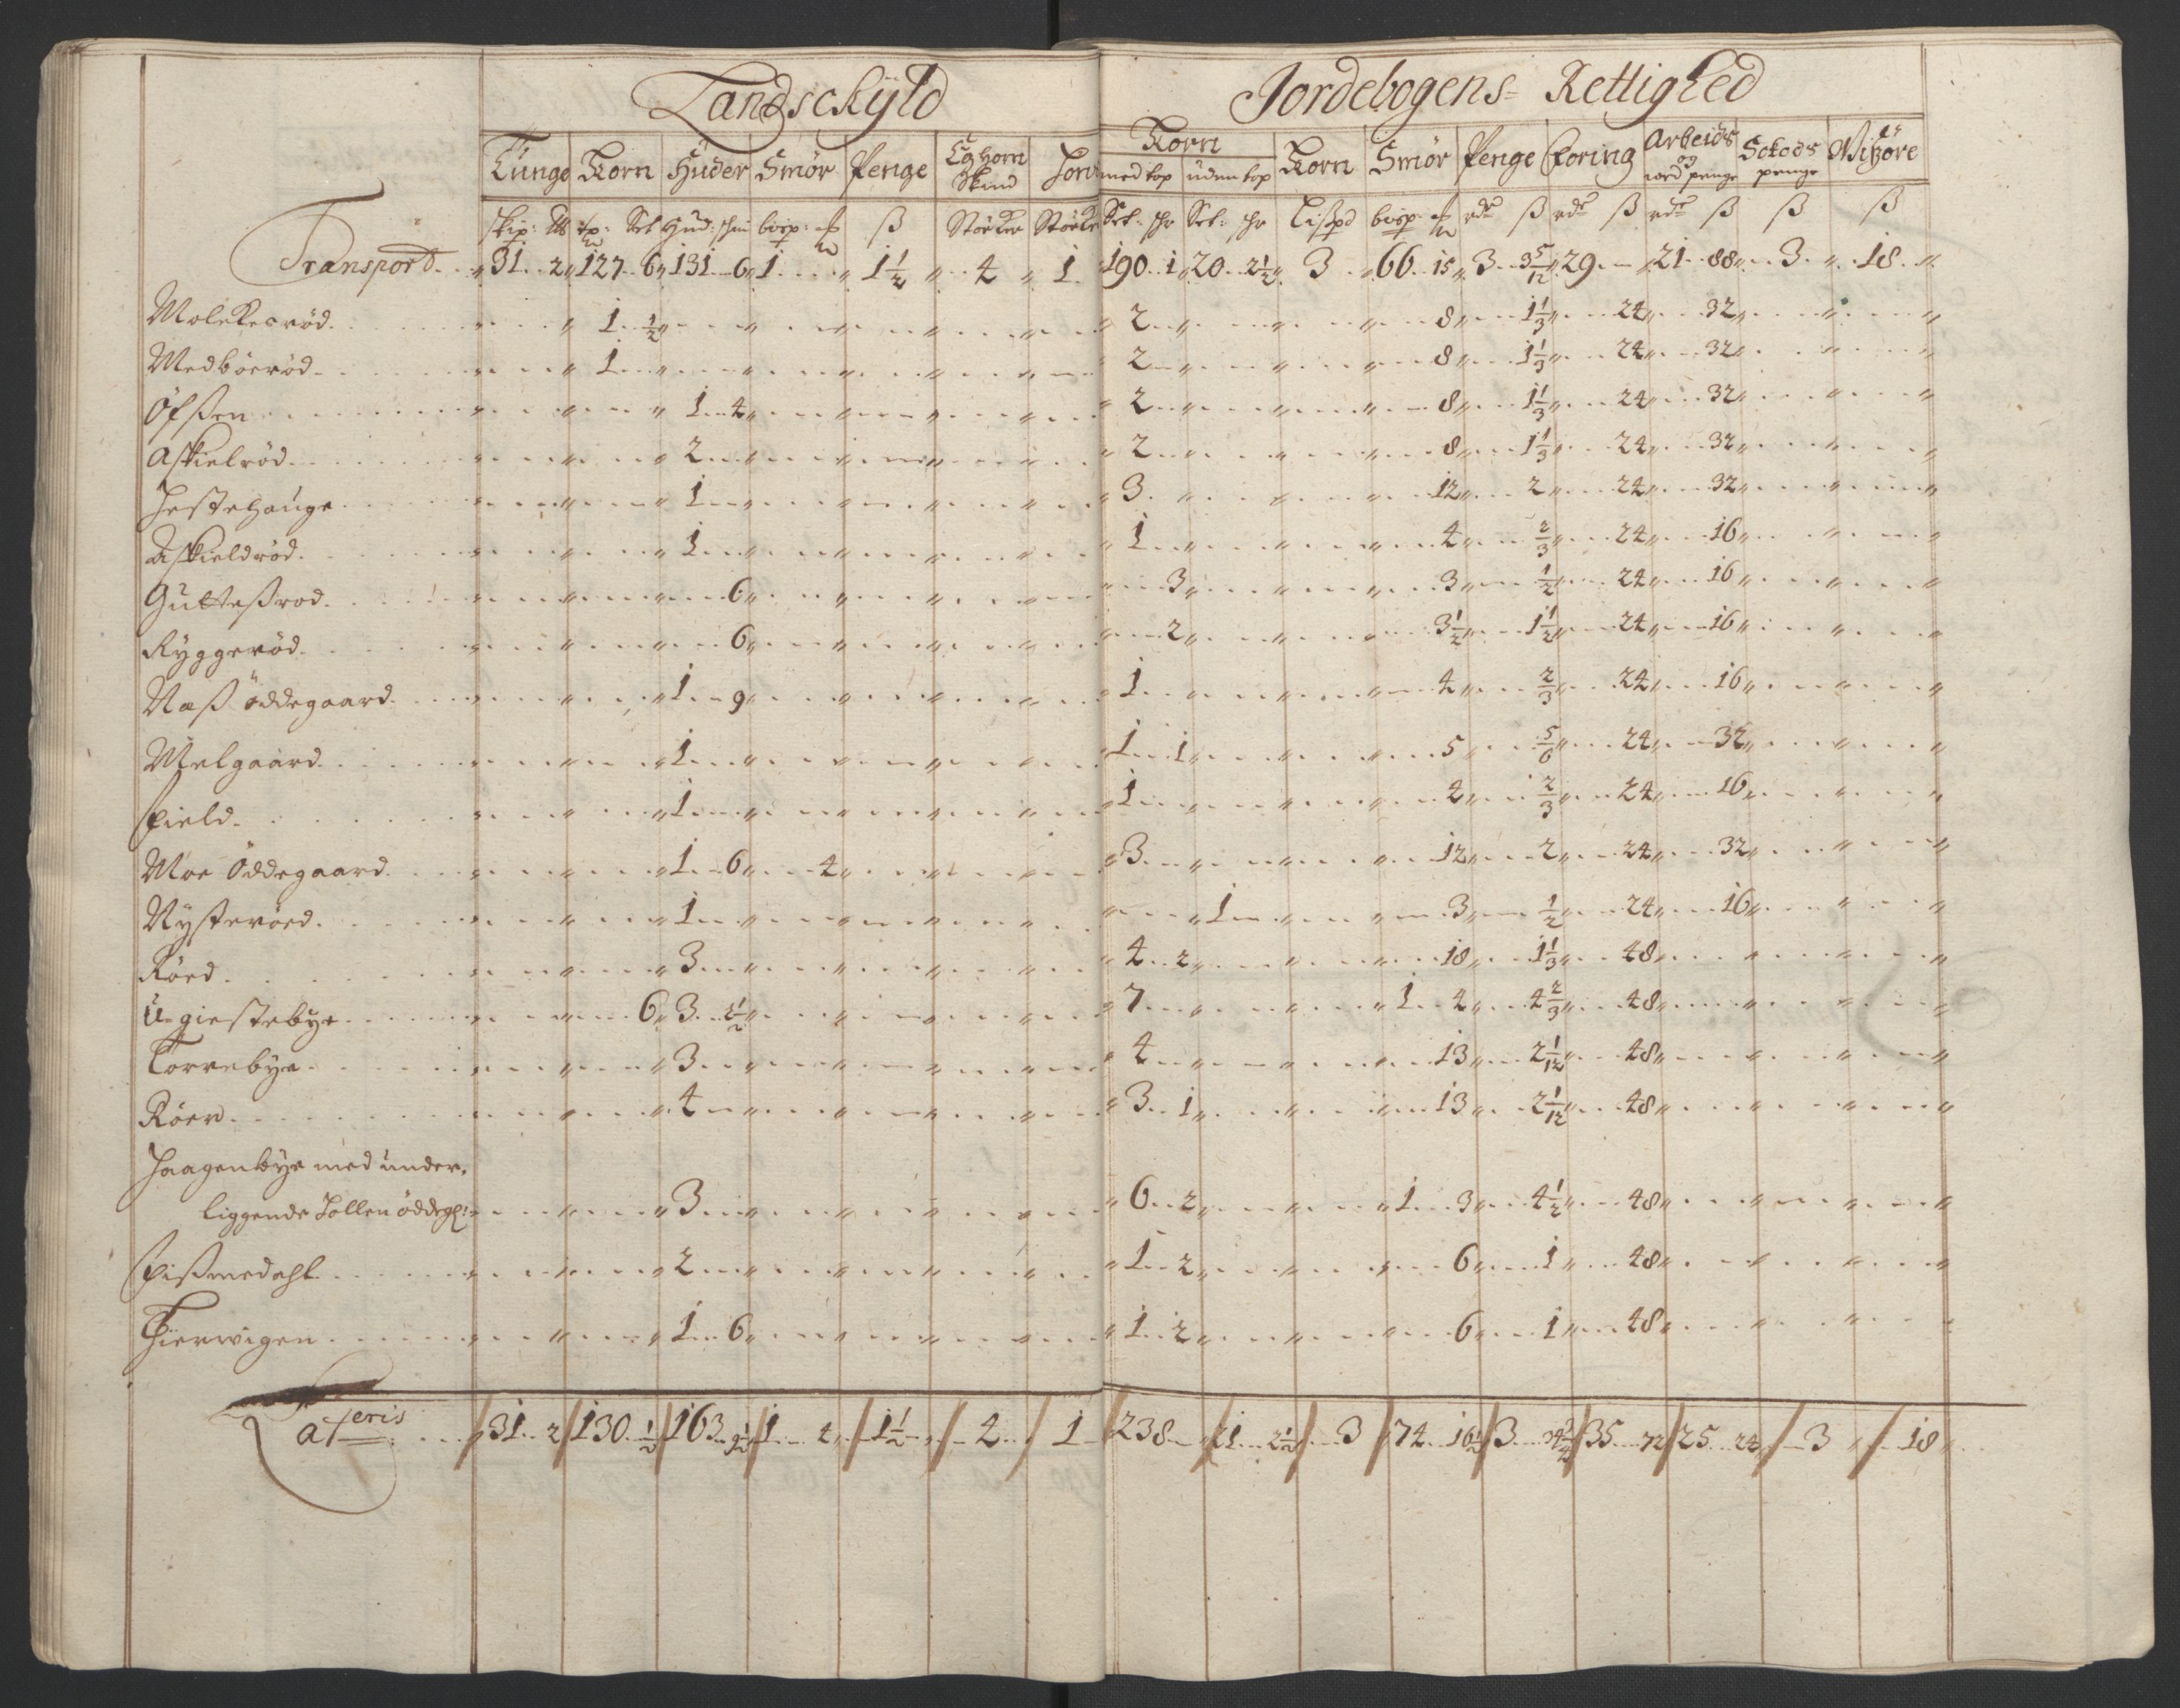 Landsckÿld
Jordebogens= Rettighed
Tunge Korn Huder Smör Penge Eghorn Skind Jord
Korn med top uden top Korn Smör Penge Foring Arbeids oc ved penge Schods penge Witzöre
skip: tp: Set Hud: skin bispt: ß Stöcker Störcke Set: skr Set: skr Lißpd bispt: rdr ß rdr ß rdr ß ß ß
Transpord. 31. 2 127. 6 131. 6 1. 1½ 4 1. 190. 1 20. 2½ 3 66. 15 3. 3 5/12 29. 21. 88 3. 18.
Molekesröd. 1. ½ 2 8 1⅓ 24 32
Medböeröd. 1 2 8 1⅓ 24 32
Öfßen 1. 4 2 8 1⅓ 24 32
Askielröd. 2 2 8 1⅓ 24 32
Hestehauge 1 3 12 2 24 32
Askieldröd. 1 1 4 ⅔ 24 16
Gutteßrod. 6 3 3 ½ 24 16
Ryggeröd. 6 2 3½ 1½ 24 16
Næß Öddegaard. 1 9 1 4 ⅔ 24 16
Melgaard. 1 1. 1 5 5/6 24 32
Field. 1 1 4 ⅔ 24 16
Moe Öddegaard. 1. 6 4 3 12 2 24 32
Nysteröed. 1 1 3 ½ 24 16
Röed. 3 4. 2 18 1⅓ 48
U-giestebye 6 3. 4½ 7 1. 4 4⅔ 48
Torrebye. 3 4 13 2 1/12 48
Röer. 4 3. 1 13 2 1/12 48
Haagenbye med under-
liggende Tollen öddegl: 3 6. 2 1. 3 4½ 48
Fißmedahl. 2 1. 2 6 1 48
Kierwigen. 1. 6 1. 2 6 1 48
a/teris 31. 2 130. ½ 163. 9½ 1. 4 1½ 4 1 238 21. 2½ 3 74. 16½ 3. 35. 72 25. 24 3 18